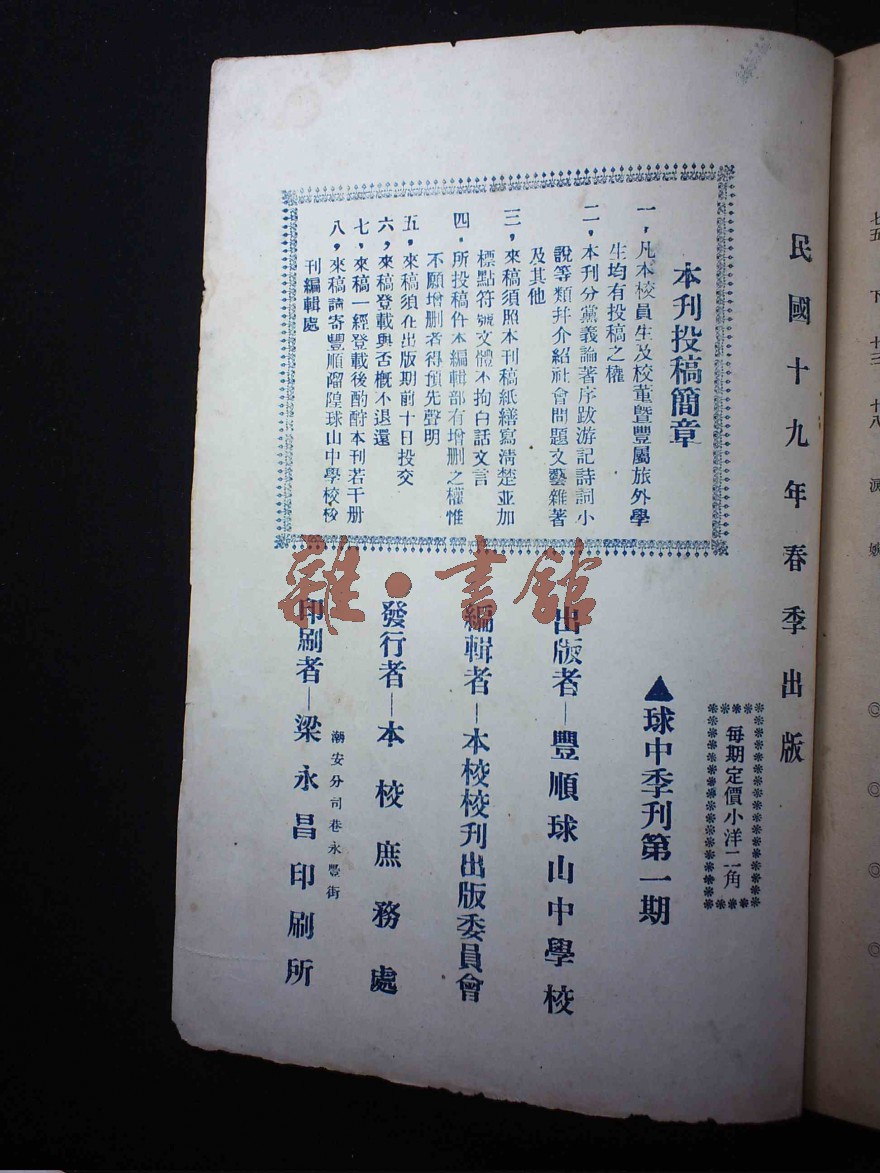 民國十九年春季出版
每期定價小洋二角
▲球中季刊第一期
出版者—豐順球山中學校
編輯者—本校校刊出版委員會
發行者—本校庶務處
潮安分司巷永豐街
印刷者—梁永昌印刷所
本刊投稿簡章
一，凡本校員生及校董暨豐屬旅外學
生均有投稿之權
二，本刊分黨義論著序跋游記詩詞小
說等類幷介紹社會問題文藝雜著
及其他
三，來稿須照本刊稿紙繕寫清楚並加
標點符號文體不拘白話文言
四．所投稿件本編輯部有增删之權惟
不願增删者得預先聲明
五，來稿須在出版期前十日投交
六，來稿登載與否概不退還
七，來稿一經登載後酌酧本刊若干册
八，來稿請寄豐順䧟隍球山中學校校
刊編輯處
雜·書館
七五 下 十三 十八